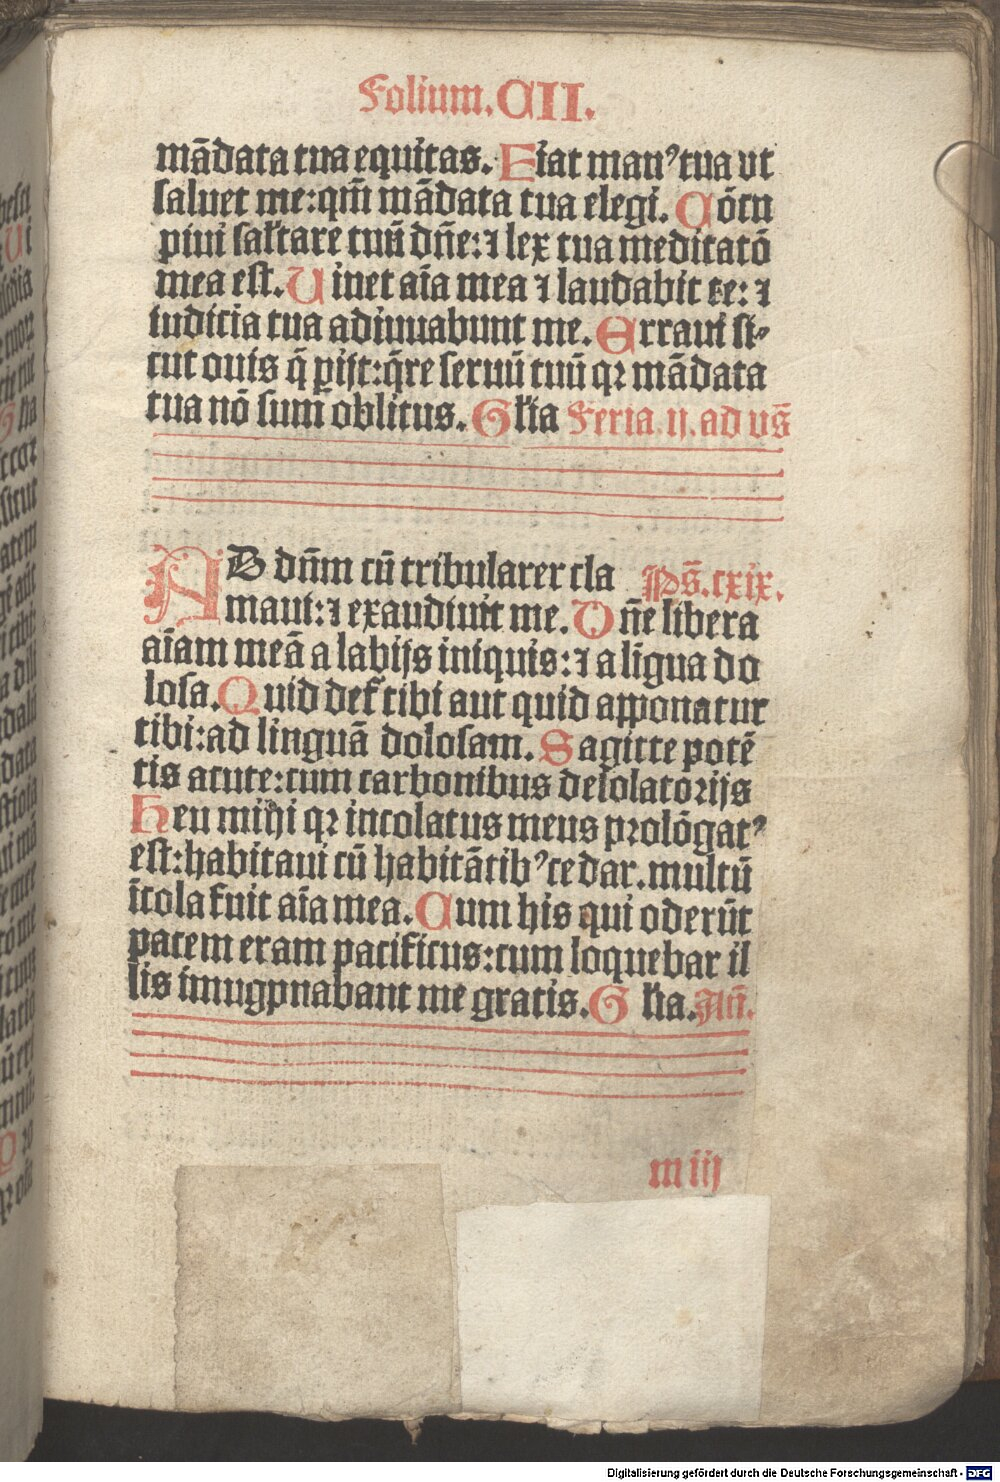 Folium. CII.
mādata tua equitas. Fiat man⁹ tua vt
saluet me: qm̄ mādata tua elegi. Cōcu
piui saltare tuū dn̄e: ⁊ lex tua meditatō
mea est. Uiuet aīa mea ⁊ laudabit te: ⁊
iudicia tua adiuuabunt me. Erraui si⸗
cut ouis q̄ ꝑijt: q̄re seruū tuū qꝛ mādata
tua nō sum oblitus. Gl'ia Feria. ij. ad vs̄
AD dn̄m cū tribularer cla Ps̄. cxix.
maui: ⁊ exaudiuit me. Dn̄e libera
aīam meā a labijs iniquis: ⁊ a līgua do
losa. Quid det᷑ tibi aut quid apponatur
tibi: ad linguā dolosam. Sagitte potē
tis acute: cum carbonibus desolatorijs
Heu mihi qꝛ incolatus meus prolōgat⁹
est: habitaui cū habitātib⁹ cedar. multū
īcola fuit aīa mea. Cum his qui oderūt
pacem eram pacificus: cum loquebar il
lis impugpnabant me gratis. Gl'ia. An̄.
m iij
Digitalisierung gefördert durch die Deutsche Forschungsgemeinschaft - DFG